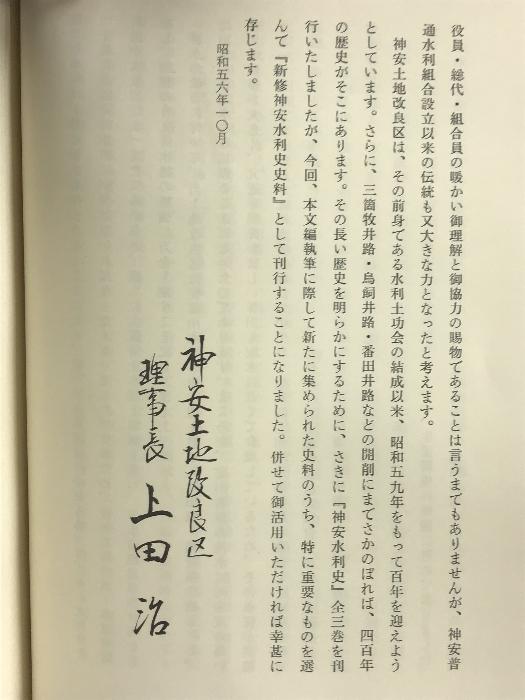 役員・総代・組合員の暖かい御理解と御協力の賜物であることは言うまでもありませんが、神安普
通水利組合設立以来の伝統も又大きな力となったと考えます。
神安土地改良区は、その前身である水利土功会の結成以来、昭和五九年をもって百年を迎えよう
としています。さらに、三箇牧井路・鳥飼井路・番田井路などの開削にまでさかのぼれば、四百年
の歴史がそこにあります。その長い歴史を明らかにするために、さきに『神安水利史』全三巻を刊
行いたしましたが、今回、本文編執筆に際して新たに集められた史料のうち、特に重要なものを選
んで『新修神安水利史史料』として刊行することになりました。併せて御活用いただければ幸甚に
存じます。
昭和五六年一〇月
神安土地改良区
理事長 上田 治